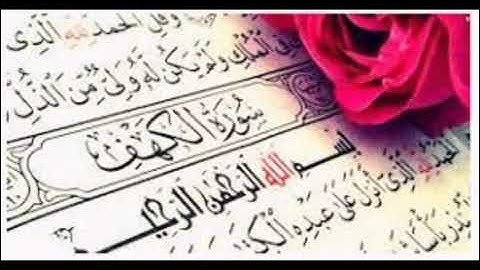 وَقُلِ الْحَمْدُ لِلَّهِ الَّذِي
فِي الْمُلْكِ وَلَمْ يَكُنْ لَهُ وَلِيٌّ مِنَ الذُّلِّ
سُورَةُ الْكَهْفِ
بِسْمِ اللَّهِ الرَّحْمَنِ الرَّحِيمِ
الْحَمْدُ لِلَّهِ الَّذِي أَنْزَلَ عَلَى عَبْدِهِ الْكِتَابَ
بَأْسًا